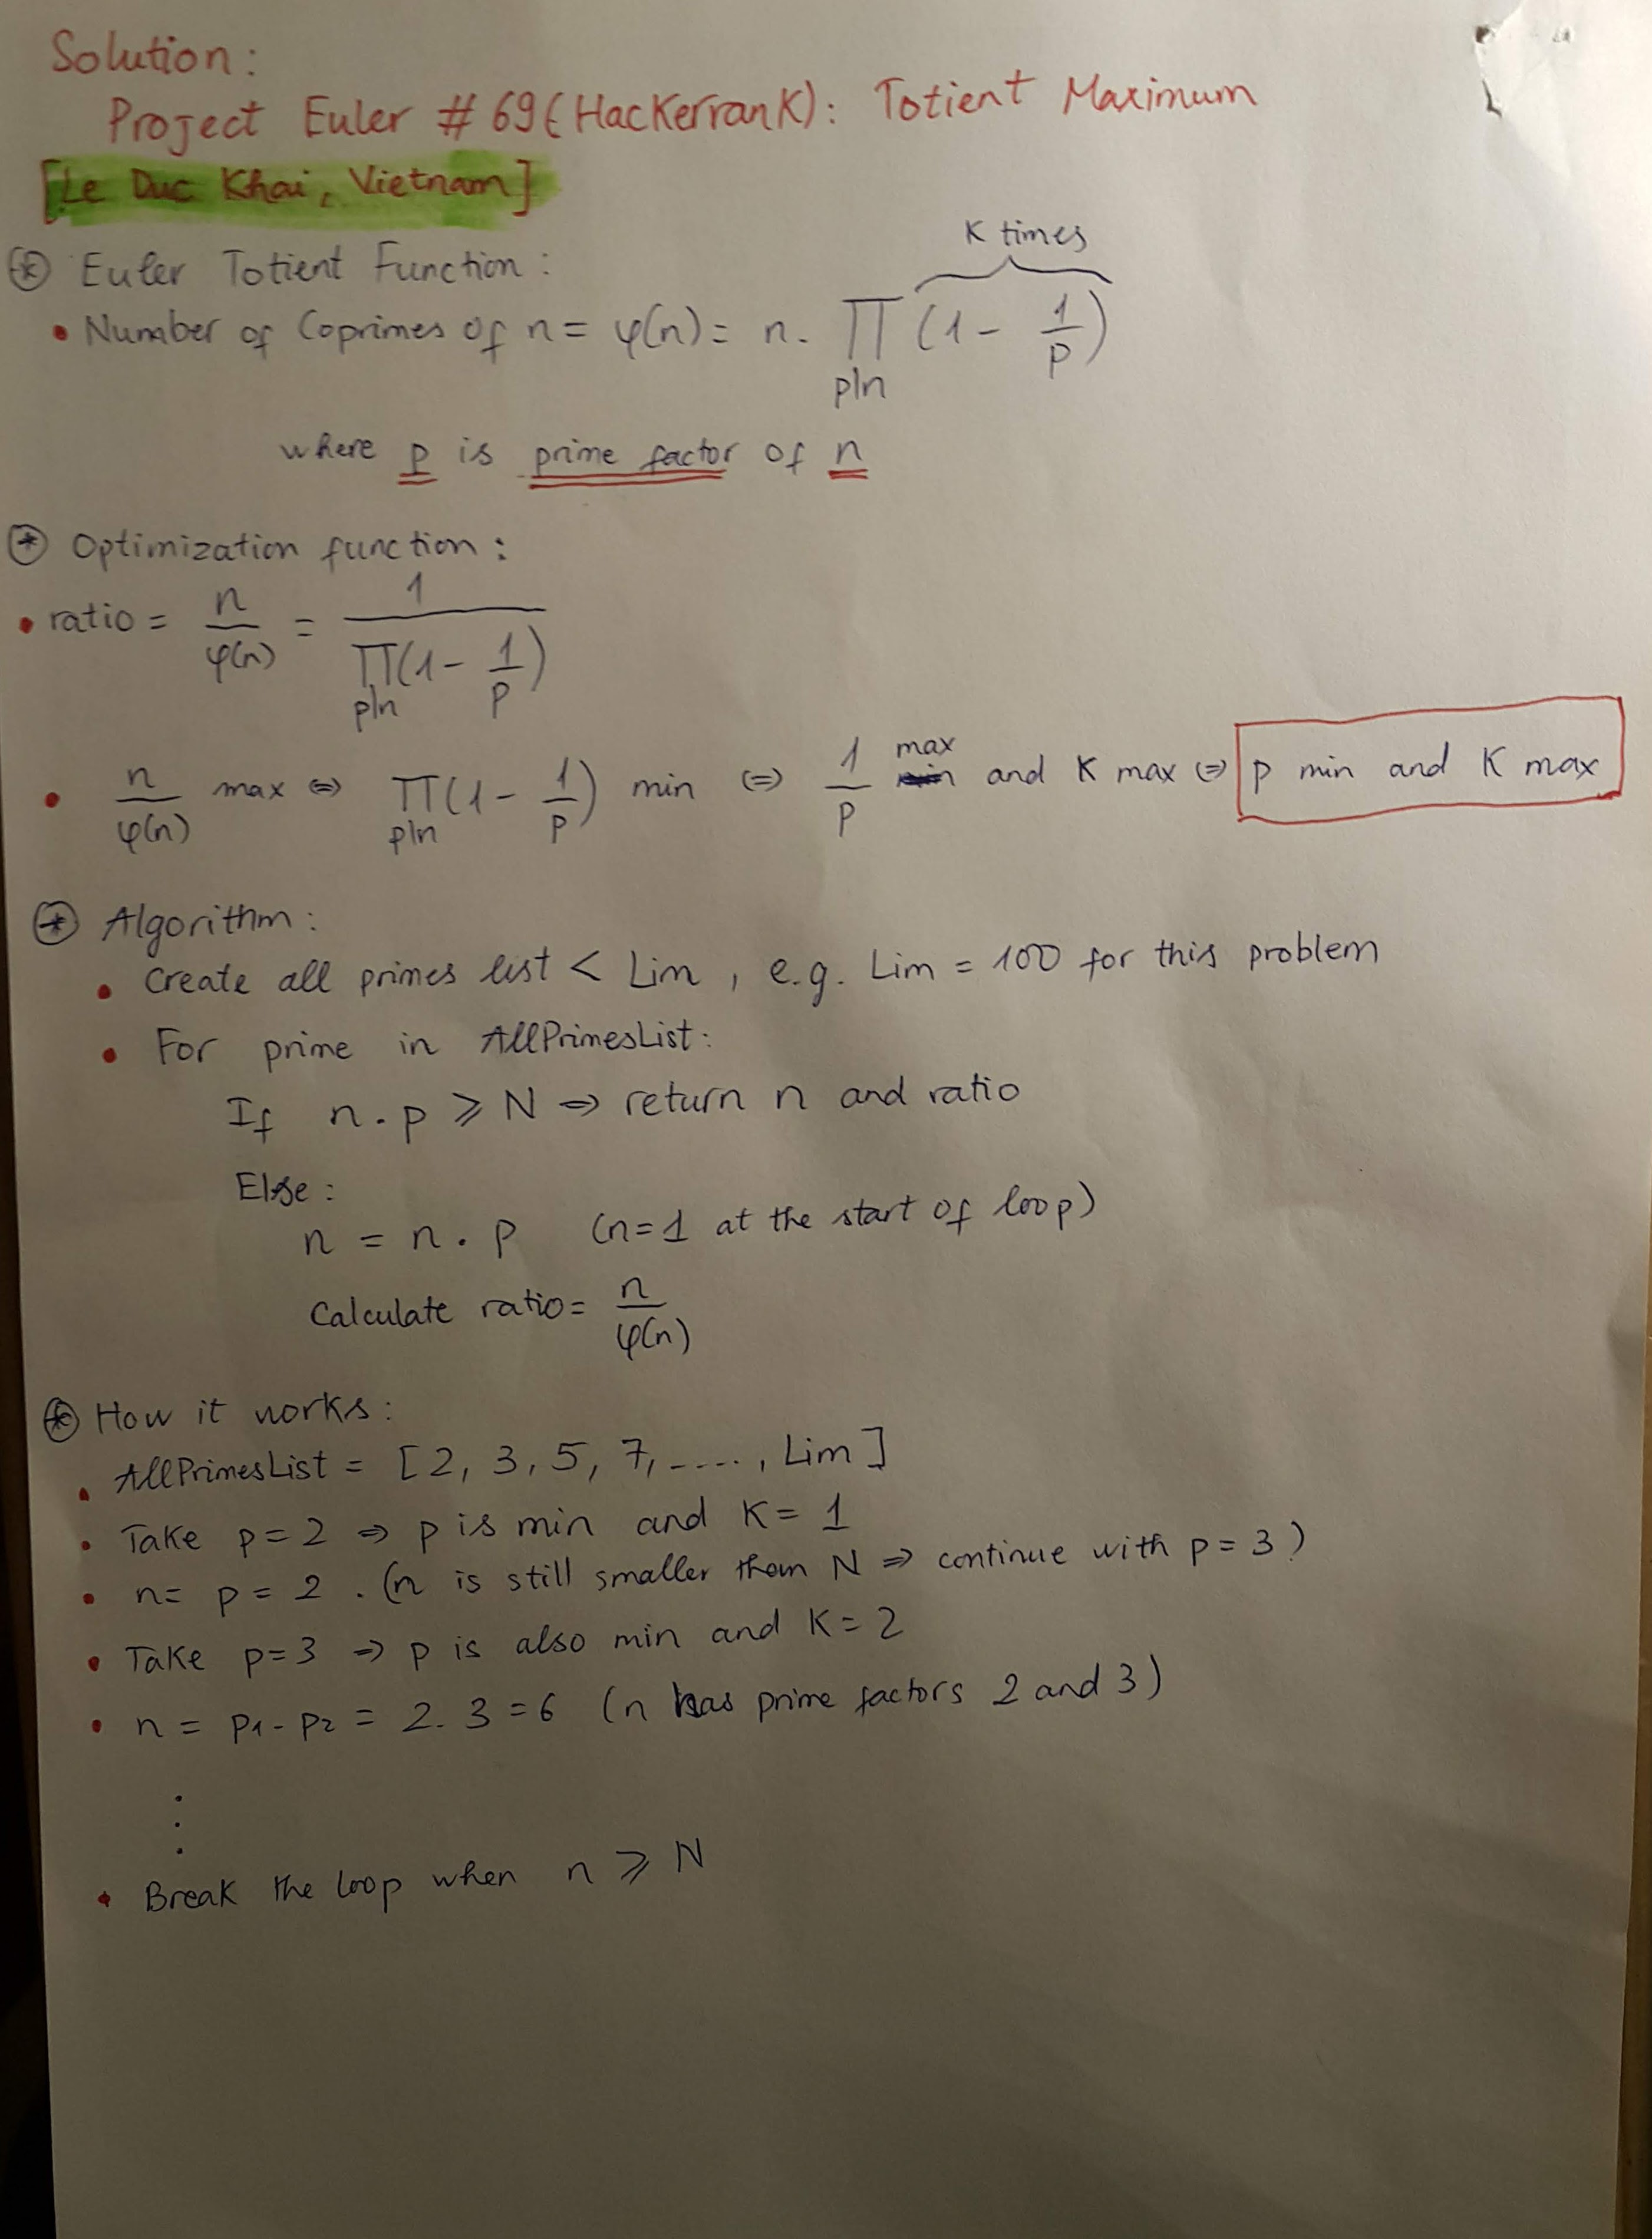 Solution:
Project Euler #69 (HackerranK): Totient Maximum
[Le Duc Khai, Vietnam]
K times
⊛ Euler Totient Function:
• Number of Coprimes of n = φ(n) = n. ∏ (1 - 1/p)
p|n
where p is prime factor of n
⊛ Optimization function:
• ratio = n/φ(n) = 1/∏(1 - 1/p)
p|n
• n/φ(n) max ⇔ ∏(1 - 1/p) min ⇔ 1/p max and K max ⇔ p min and K max
p|n
⊛ Algorithm:
• Create all primes list < Lim, e.g. Lim = 100 for this problem
• For prime in AllPrimesList:
If n.p ⩾ N ⇒ return n and ratio
Else:
n = n . p (n=1 at the start of loop)
Calculate ratio = n/φ(n)
⊛ How it works:
• AllPrimesList = [2, 3, 5, 7, ....., Lim]
• Take p=2 ⇒ p is min and K=1
• n= p = 2 . (n is still smaller than N ⇒ continue with p = 3)
• Take p=3 ⇒ p is also min and K=2
• n = p1.p2 = 2.3=6 (n has prime factors 2 and 3)
⋮
• Break the loop when n ⩾ N